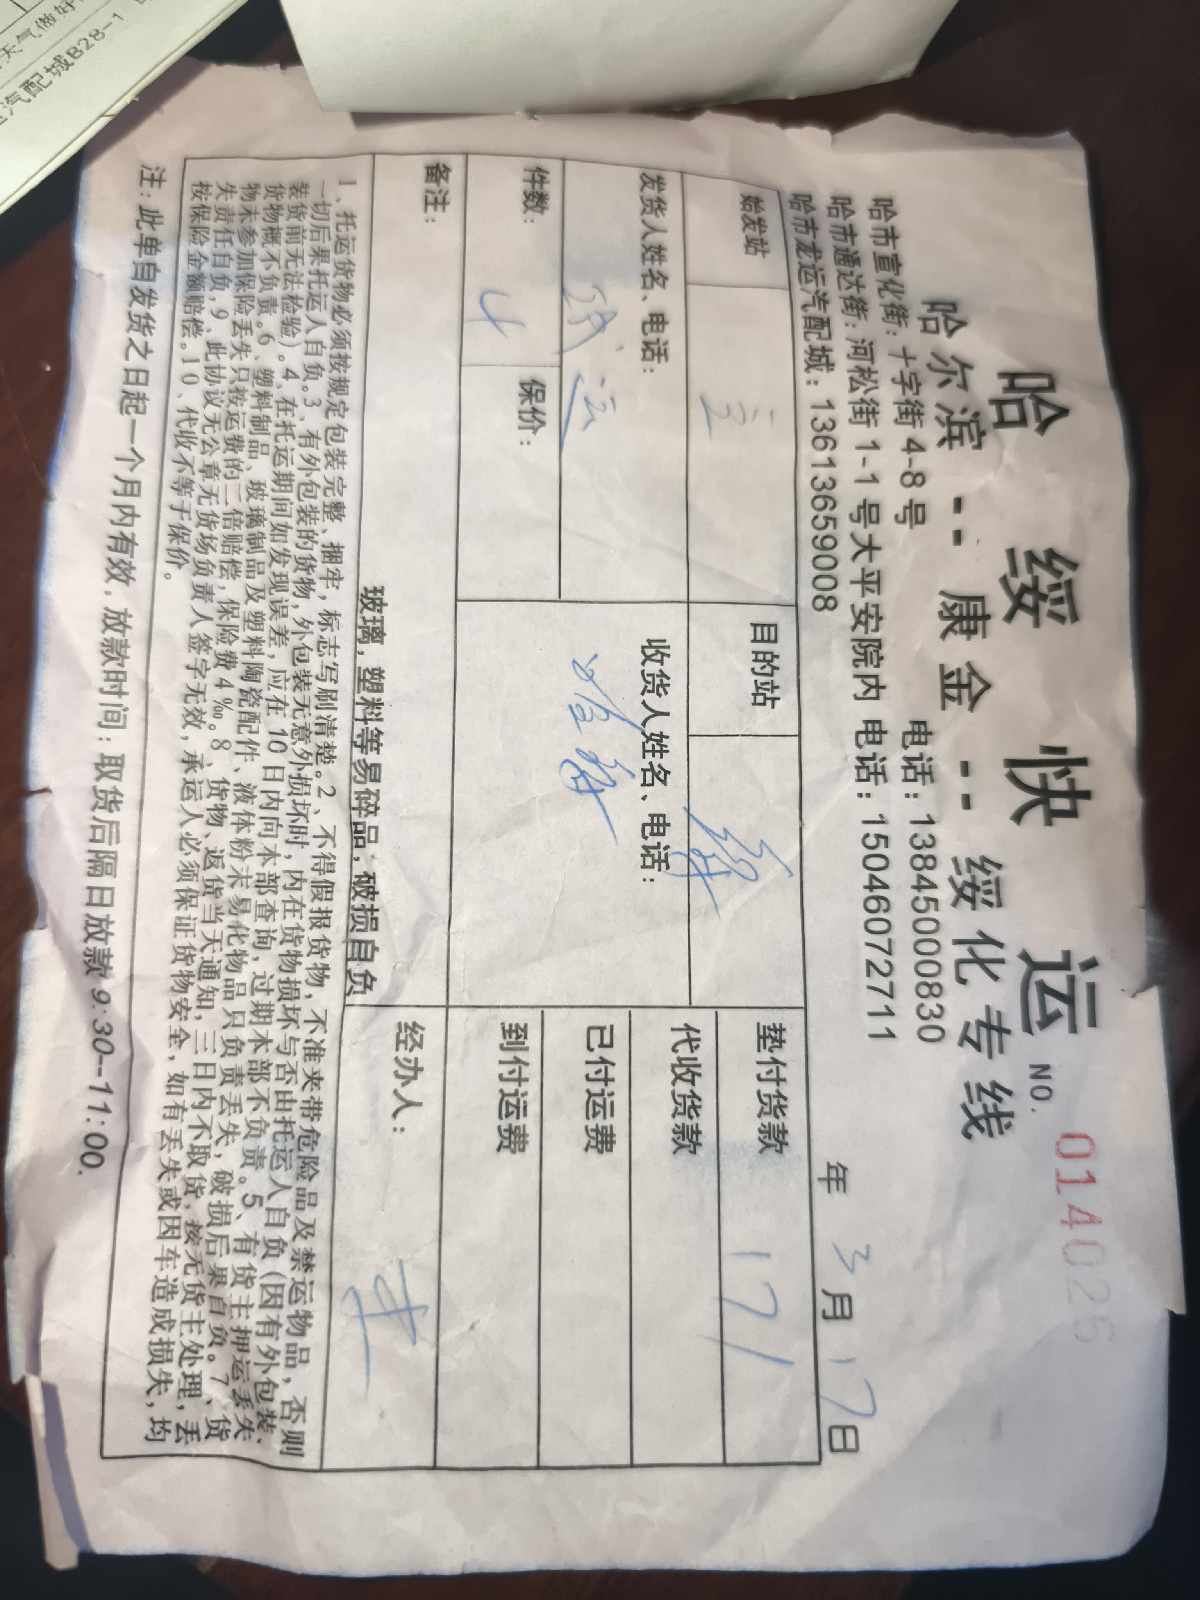 哈绥快运 NO. 014025
哈尔滨--康金--绥化专线
哈市宣化街：十字街 4-8 号 电话：13845000830
哈市通达街：河松街 1-1 号大平安院内 电话：15046072711
哈市龙运汽配城：13613659008
年 3 月 17 日
始发站 目的站 绥 垫付货款 171
发货人姓名、电话： 收货人姓名、电话： 代收货款
已付运费
件数： 4 保价： 到付运费
备注： 玻璃，塑料等易碎品，破损自负 经办人：
1、托运货物必须按规定包装完整、捆牢，标志写刷清楚。2、不得假报货物，不准夹带危险品及禁运物品，否则
一切后果托运人自负。3、有外包装的货物，外包装无意外损坏时，内在货物损坏与否由托运人自负(因有外包装、
装货前无法检验)。4、在托运期间如发现误差，应在 10 日内向本部查询，过期本部不负责。5、有货主押运丢失
货物概不负责。6、塑料制品、玻璃制品及塑料陶瓷配件、液体粉末易化物品只负责丢失，破损后果自负。7、货
物未参加保险丢失只按运费的二倍赔偿，保险费4‰。8、货物、返货当天通知，三日内不取货，按无货主处理，丢
失责任自负，9、此协议无公章无货场负责人签字无效，承运人必须保证货物安全，如有丢失或因车造成损失，均
按保险金额赔偿。10、代收不等于保价。
注：此单自发货之日起一个月内有效，放款时间：取货后隔日放款 9:30--11:00.
天气做好
汽配城B28-1